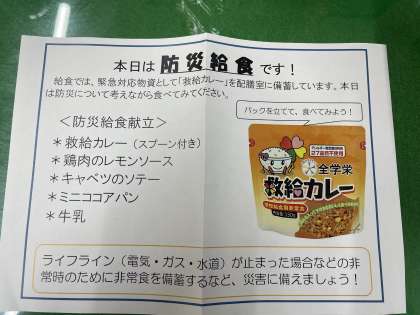 本日は防災給食です！
給食では、緊急対応物資として「救給カレー」を配膳室に備蓄しています。本日
は防災について考えながら食べてみてください。
＜防災給食献立＞
＊救給カレー（スプーン付き）
＊鶏肉のレモンソース
＊キャベツのソテー
＊ミニココアパン
＊牛乳
パックを立てて、食べてみよう！
全学栄
救給カレー
ライフライン（電気・ガス・水道）が止まった場合などの非
常時のために非常食を備蓄するなど、災害に備えましょう！